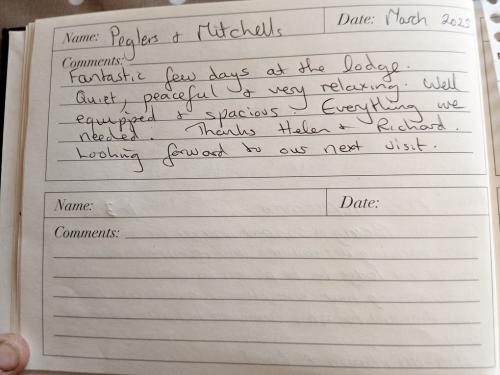 Name: Peglers & Mitchells Date: March 2023
Comments:
Fantastic few days at the lodge.
Quiet, peaceful & very relaxing. Well
equipped & spacious. Everything we
needed. Thanks Helen & Richard.
Looking forward to our next visit.
Name: Date:
Comments: